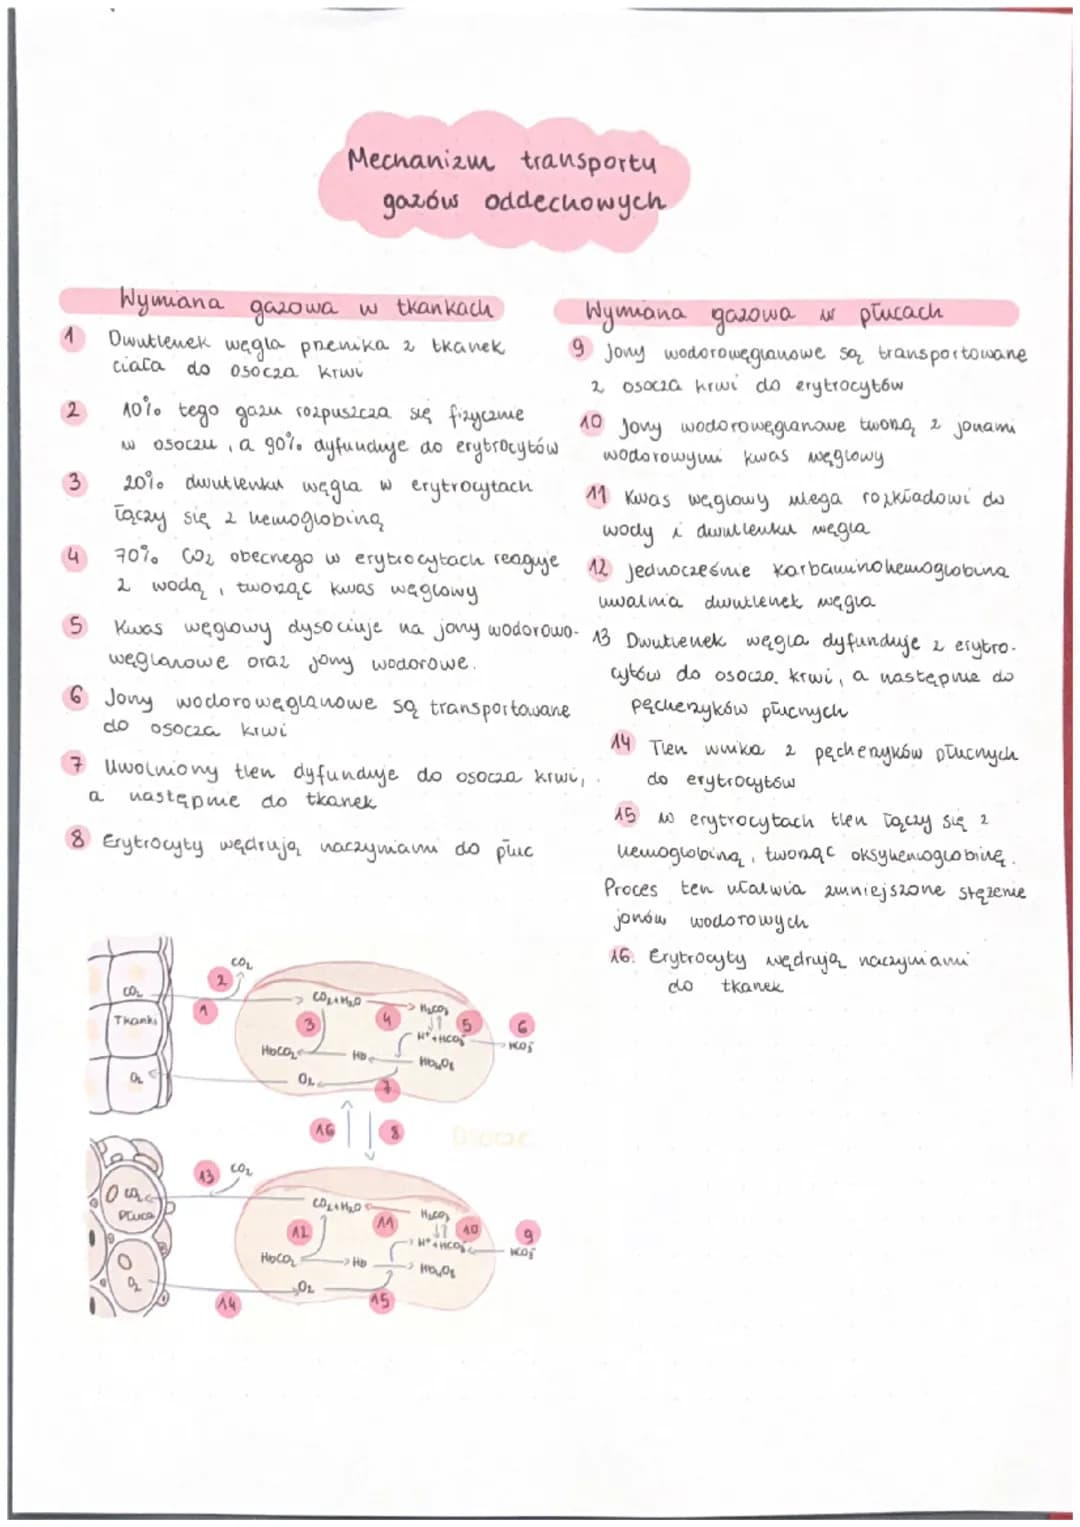 Mechanizm transportu
gazów oddechowych
Wymiana gazowa w tkankach
1 Dwutlenek węgla przenika z tkanek
ciała do osocza krwi
2 10% tego gazu rozpuszcza się fizycznie
w osoczu, a 90% dyfunduje do erytrocytów
3 20% dwutlenku węgla w erytrocytach
łączy się z hemoglobiną
4 70% CO₂ obecnego w erytrocytach reaguje
z wodą, tworząc kwas węglowy
5 Kwas węglowy dysocjuje na jony wodorowo-
węglanowe oraz jony wodorowe.
6 Jony wodorowęglanowe są transportowane
do osocza krwi
7 Uwolniony tlen dyfunduje do osocza krwi,
a następnie do tkanek
8 Erytrocyty wędrują naczyniami do płuc
Wymiana gazowa w płucach
9 Jony wodorowęglanowe są transportowane
z osocza krwi do erytrocytów
10 Jony wodorowęglanowe tworzą z jonami
wodorowymi kwas węglowy
11 Kwas węglowy ulega rozkładowi do
wody i dwutlenku węgla
12 Jednocześnie karbaminohemoglobina
uwalnia dwutlenek węgla
13 Dwutlenek węgla dyfunduje z erytro-
cytów do osocza krwi, a następnie do
pęcherzyków płucnych
14 Tlen wnika z pęcherzyków płucnych
do erytrocytów
15 w erytrocytach tlen łączy się z
hemoglobiną, tworząc oksyhemoglobinę.
Proces ten ułatwia zmniejszone stężenie
jonów wodorowych
16. Erytrocyty wędrują naczyniami
do tkanek
CO₂
2
CO₂
1
Tkanki
O₂
CO₂+H₂O
4
H₂CO₃
3
5
6
H⁺+HCO₃⁻
HCO₃⁻
HbCO₂
Hb
Hb₄O₈
O₂
7
16
8
13
CO₂
CO₂
Płuca
O₂
CO₂+H₂O
11
H₂CO₃
12
10
9
H⁺+HCO₃⁻
HCO₃⁻
HbCO₂
Hb
Hb₄O₈
O₂
14
15